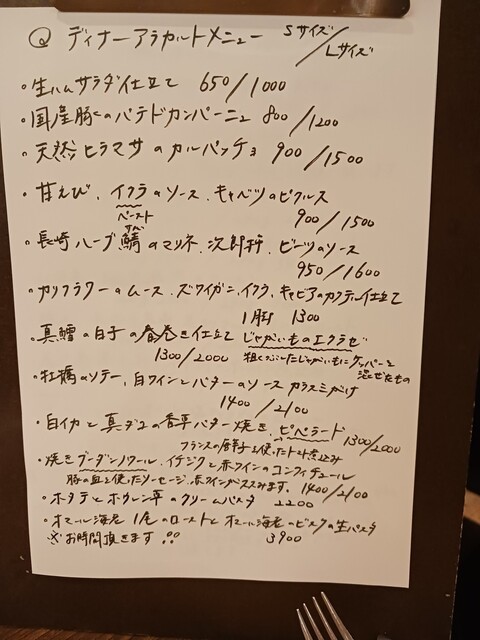 Q ディナーアラカルトメニュー Sサイズ/Lサイズ
・生ハムサラダ仕立て 650/1000
・国産豚のパテドカンパーニュ 800/1200
・天然ヒラマサのカルパッチョ 900/1500
・甘えび、イクラのソース、キャベツのピクルス
ペースト
900/1500
・長崎ハーブ鯖のマリネ、次郎柿、ビーツのソース
サバ
950/1600
・カリフラワーのムース、ズワイガニ、イクラ、キャビアのカクテル仕立て
1脚 1300
・真鱈の白子の春巻き仕立て じゃがいものエクラゼ
1300/2000 粗くつぶしたじゃがいもにケッパーを
混ぜたもの
・牡蠣のソテー、白ワインとバターのソース カラスミがけ
1400/2100
・白イカと真ダコの香草バター焼き、ピペラード 1300/2000
フランスの唐辛子を使ったトマト煮込み
・焼きブーダンノワール、イチジクと赤ワインのコンフィチュール
豚の血を使ったソーセージ、赤ワインがススみます。 1400/2100
・ホタテとホウレン草のクリームパスタ 2200
・オマール海老 1尾のローストとオマール海老のビスクの生パスタ
※お時間頂きます!! 3900